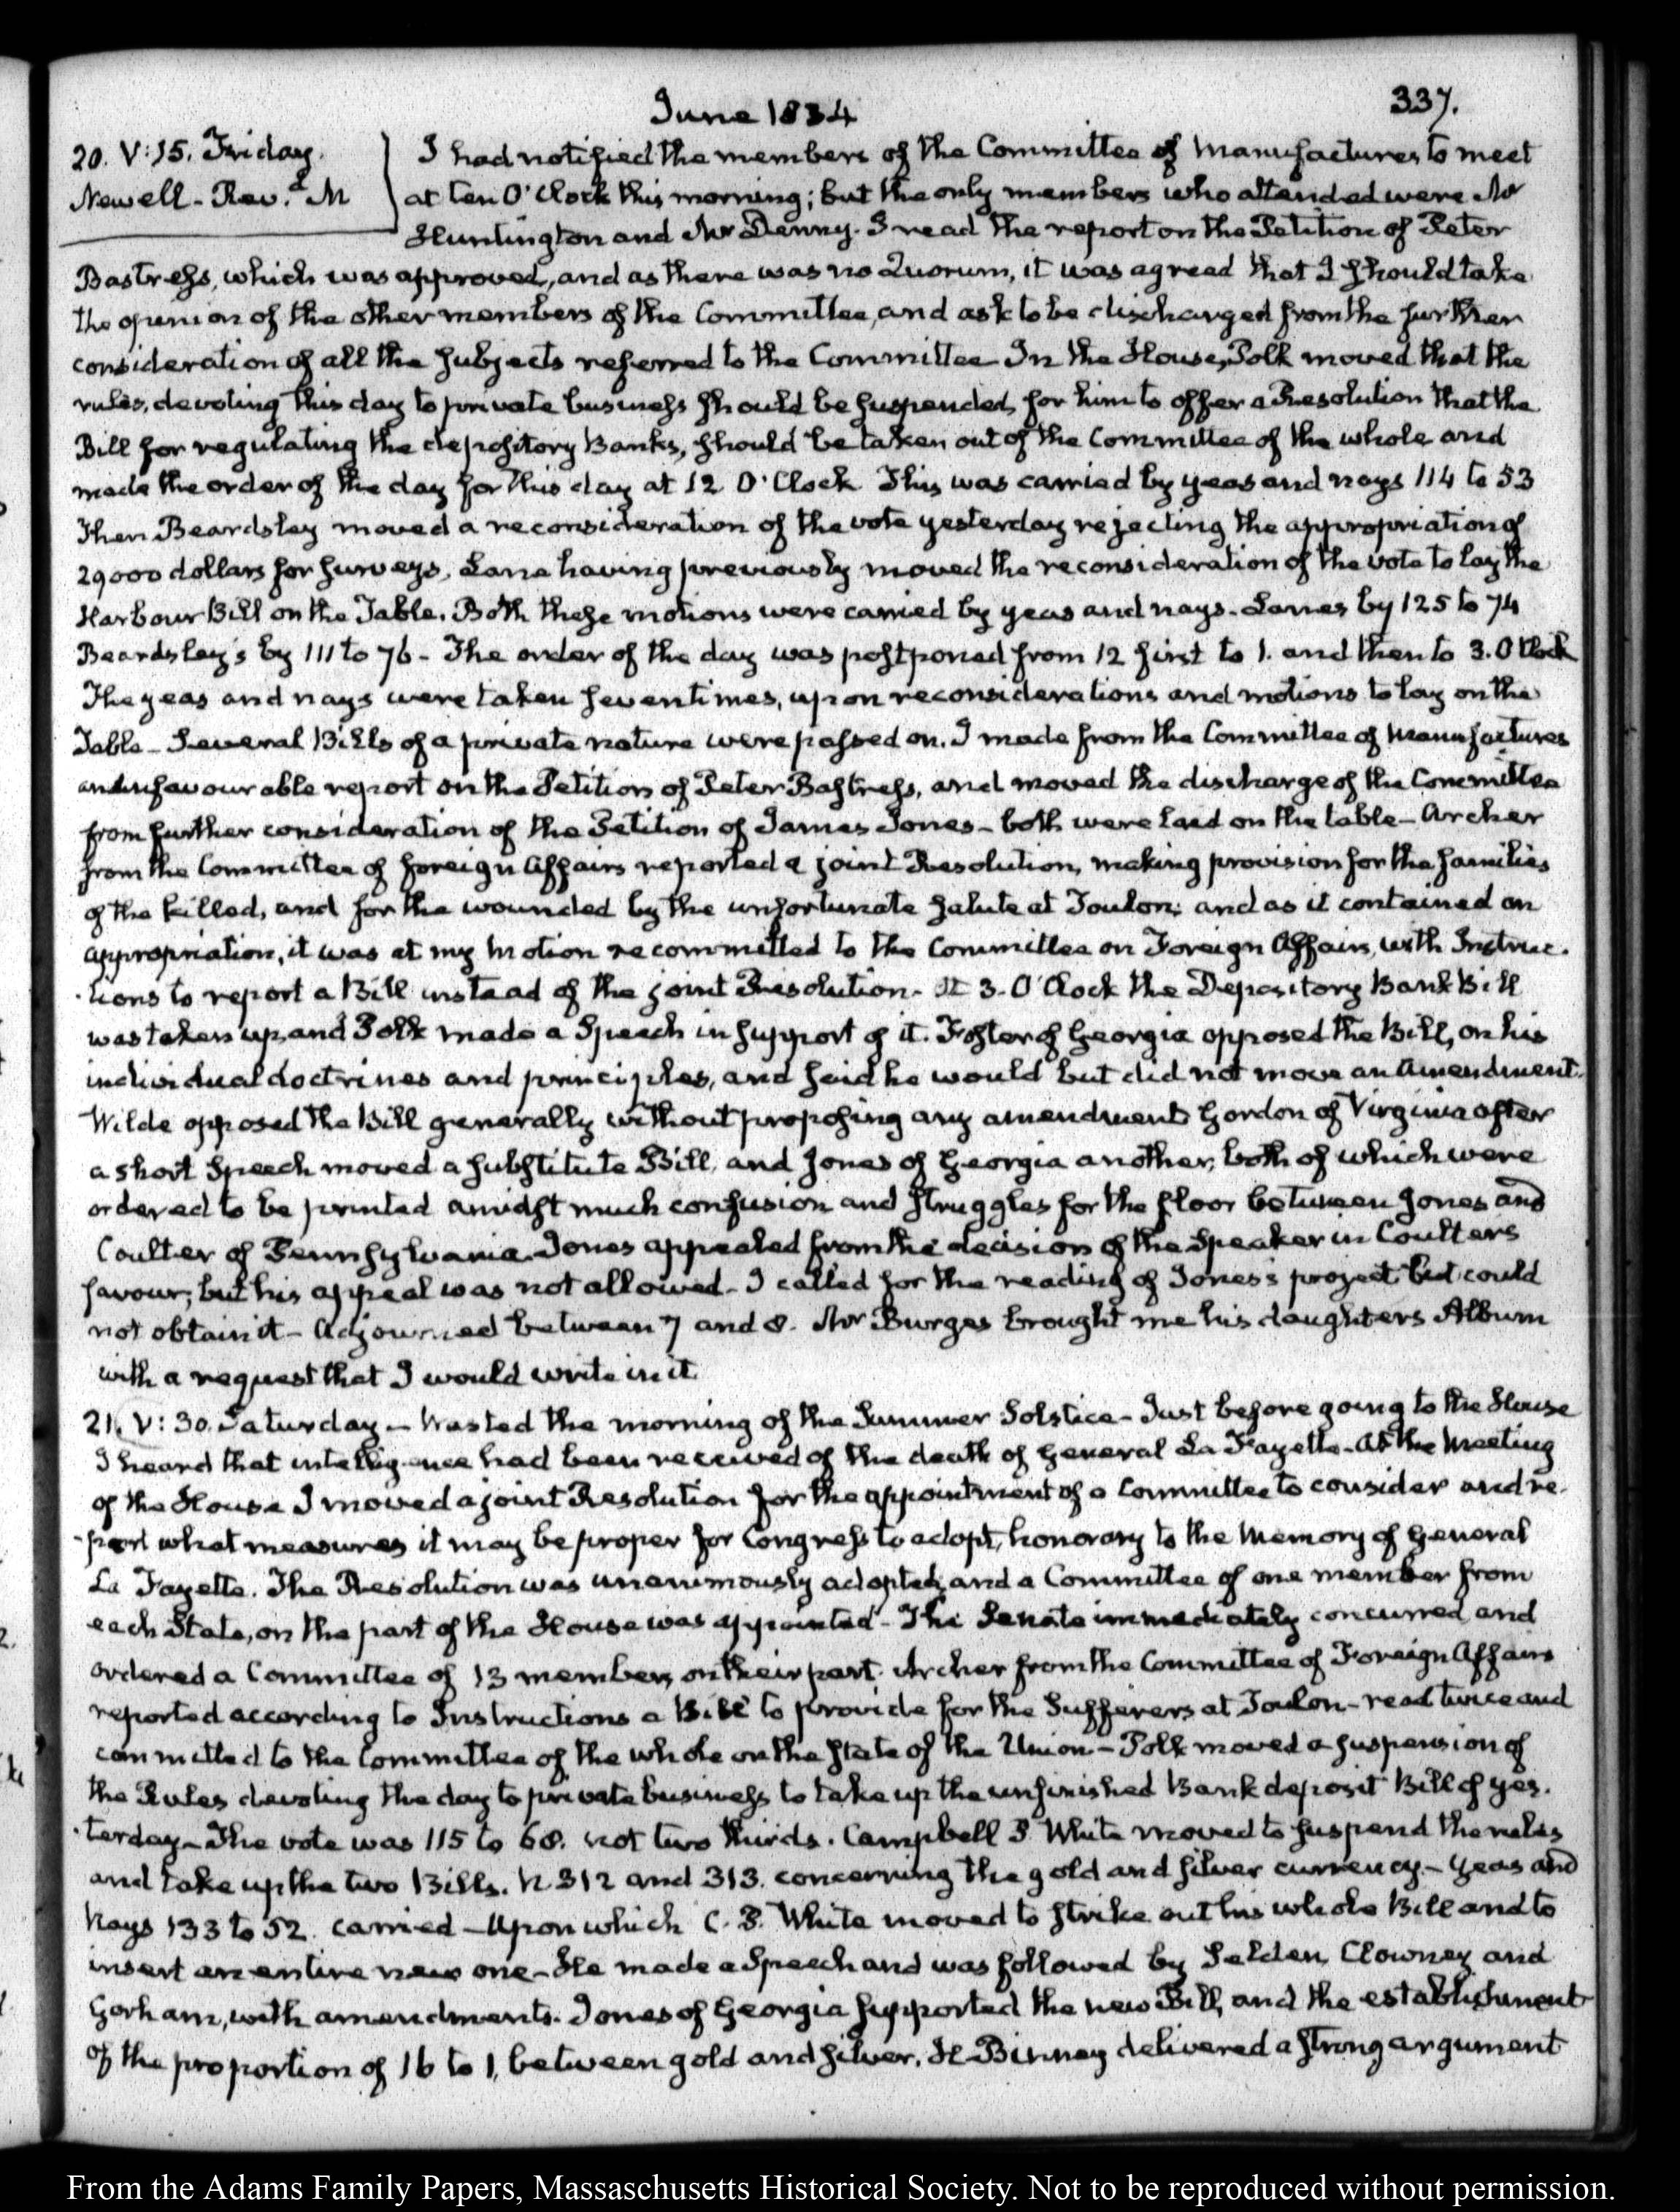 June 1834
337.
20. V:15. Friday.
Newell - Rev.d M
I had notified the members of the Committee of Manufactures to meet
at ten O'Clock this morning; but the only members who attended were Mr
Huntington and Mr Denny. I read the report on the Petition of Peter
Bastress, which was approved, and as there was no Quorum, it was agreed that I should take
the opinion of the other members of the Committee, and ask to be discharged from the further
consideration of all the subjects referred to the Committee In the House, Polk moved that the
rules, devoting this day to private business should be suspended, for him to offer a Resolution that the
Bill for regulating the depository Banks, should be taken out of the Committee of the whole and
made the order of the day for this day at 12 O'Clock This was carried by yeas and nays 114 to 53
Then Beardsley moved a reconsideration of the vote yesterday rejecting the appropriation of
29000 dollars for surveys, Lane having previously moved the reconsideration of the vote to lay the
Harbour Bill on the Table. Both these motions were carried by yeas and nays - Lanes by 125 to 74
Beardsley's by 111 to 76 - The order of the day was postponed from 12 first to 1. and then to 3. O Clock
The yeas and nays were taken seven times, upon reconsiderations and motions to lay on the
Table - Several Bills of a private nature were passed on. I made from the Committee of Manufactures
an unfavourable report on the Petition of Peter Bastress, and moved the discharge of the Committee
from further consideration of the Petition of James Jones - both were laid on the table - Archer
from the Committee of Foreign Affairs reported a joint Resolution, making provision for the families
of the killed, and for the wounded by the unfortunate salute at Toulon; and as it contained an
appropriation, it was at my motion recommitted to the Committee on Foreign Affairs, with Instruc-
-tions to report a Bill instead of the joint Resolution - At 3. O'Clock the Depository Bank Bill
was taken up, and Polk made a Speech in support of it. Foster of Georgia opposed the Bill, on his
individual doctrines and principles, and said he would but did not move an Amendment.
Wilde opposed the Bill generally without proposing any amendment Gordon of Virginia after
a short Speech moved a substitute Bill, and Jones of Georgia another, both of which were
ordered to be printed amidst much confusion and struggles for the floor between Jones and
Coulter of Pennsylvania. Jones appealed from the decision of the Speaker in Coulters
favour; but his appeal was not allowed - I called for the reading of Jones's project but could
not obtain it - Adjourned between 7 and 8. Mr Burges brought me his daughters Album
with a request that I would write in it.
21. V:30. Saturday - Wasted the morning of the Summer Solstice - Just before going to the House
I heard that intelligence had been received of the death of General La Fayette - At the Meeting
of the House I moved a joint Resolution for the appointment of a Committee to consider and re-
-port what measures it may be proper for Congress to adopt, honorary to the Memory of General
La Fayette. The Resolution was unanimously adopted, and a Committee of one member from
each State, on the part of the House was appointed - The Senate immediately concurred, and
ordered a Committee of 13 members on their part. Archer from the Committee of Foreign Affairs
reported according to Instructions a Bill to provide for the Sufferers at Toulon - read twice and
committed to the Committee of the whole on the state of the Union - Polk moved a suspension of
the Rules devoting the day to private business to take up the unfinished Bank deposit Bill of yes-
-terday - The vote was 115 to 60. not two thirds. Campbell P. White moved to suspend the rules
and take up the two Bills. N. 312 and 313. concerning the gold and silver currency - Yeas and
Nays 133 to 52. carried - Upon which C. P. White moved to strike out his whole Bill and to
insert an entire new one - He made a Speech and was followed by Selden, Clowney and
Gorham, with amendments. Jones of Georgia supported the new Bill, and the establishment
of the proportion of 16 to 1, between gold and silver. H. Binney delivered a strong argument
From the Adams Family Papers, Massachusetts Historical Society. Not to be reproduced without permission.